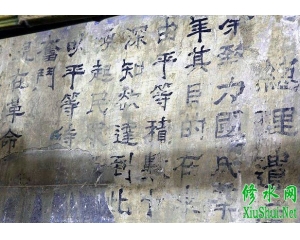 總理遺
余致力國民革
年其目的在
由平等積數十
深知欲達到此
喚起民
以平等待
奮鬥
在革命
修水网
XiuShui.Net